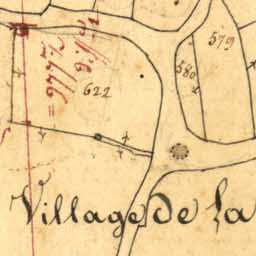 579
580
622
Village de la